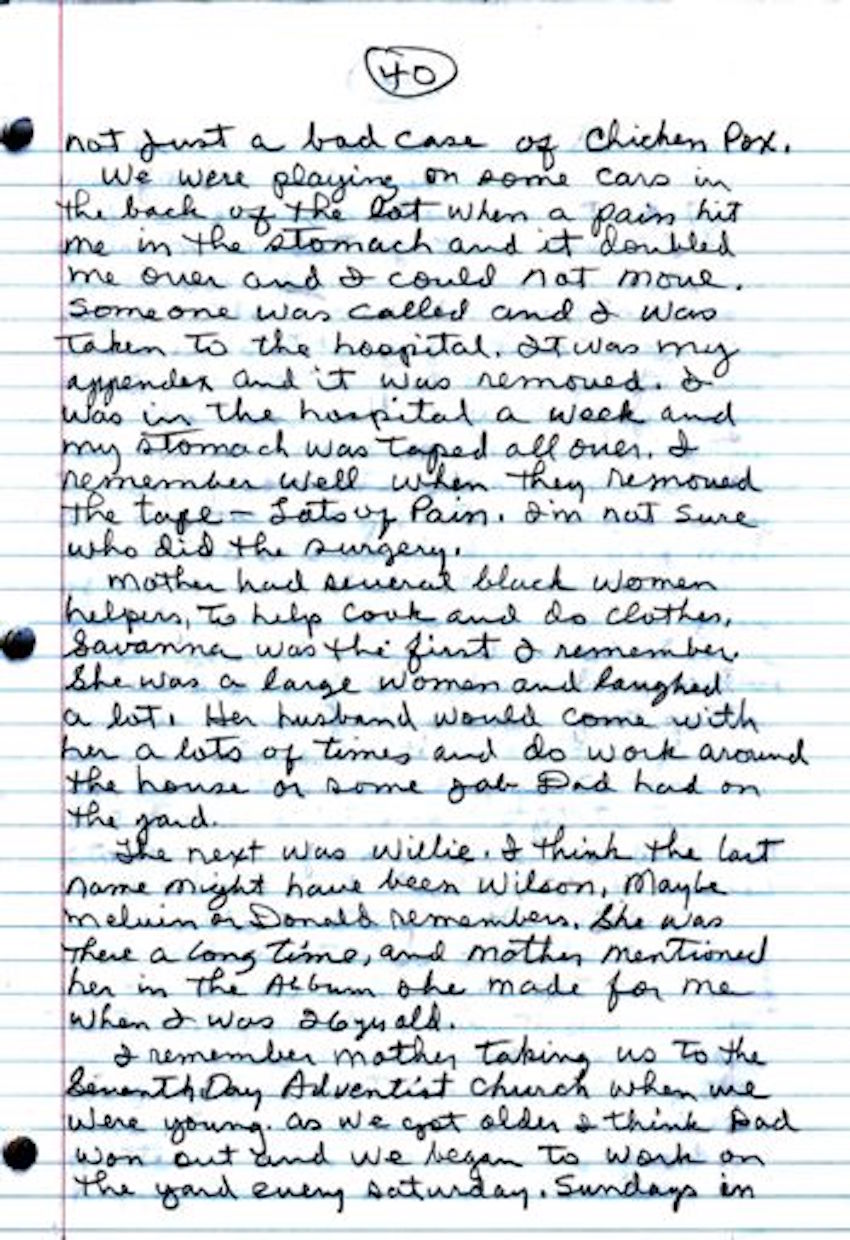 40
not Just a bad case of Chicken Pox.
We were playing on some cars in
the back of the lot when a pain hit
me in the stomach and it doubled
me over and I could not move.
Someone was called and I was
taken to the hospital. It was my
appendex and it was removed. I
was in the hospital a week and
my stomach was taped all over. I
remember well when they removed
the tape - Lots of Pain. I'm not sure
who did the surgery.
Mother had several black women
helpers, to help cook and do clothes,
Savanna was the first I remember.
She was a large women and laughed
a lot. Her husband would come with
her a lots of times and do work around
the house or some job Dad had on
the yard.
The next was Willie. I think the last
name might have been Wilson, Maybe
Melvin or Donald remembers. She was
there a long time, and mother mentioned
her in the Album she made for me
when I was 26 yrs old.
I remember mother taking us to the
Seventh Day Adventist Church when we
were young. As we got older I think Dad
won out and we began to work on
the yard every saturday. Sundays in